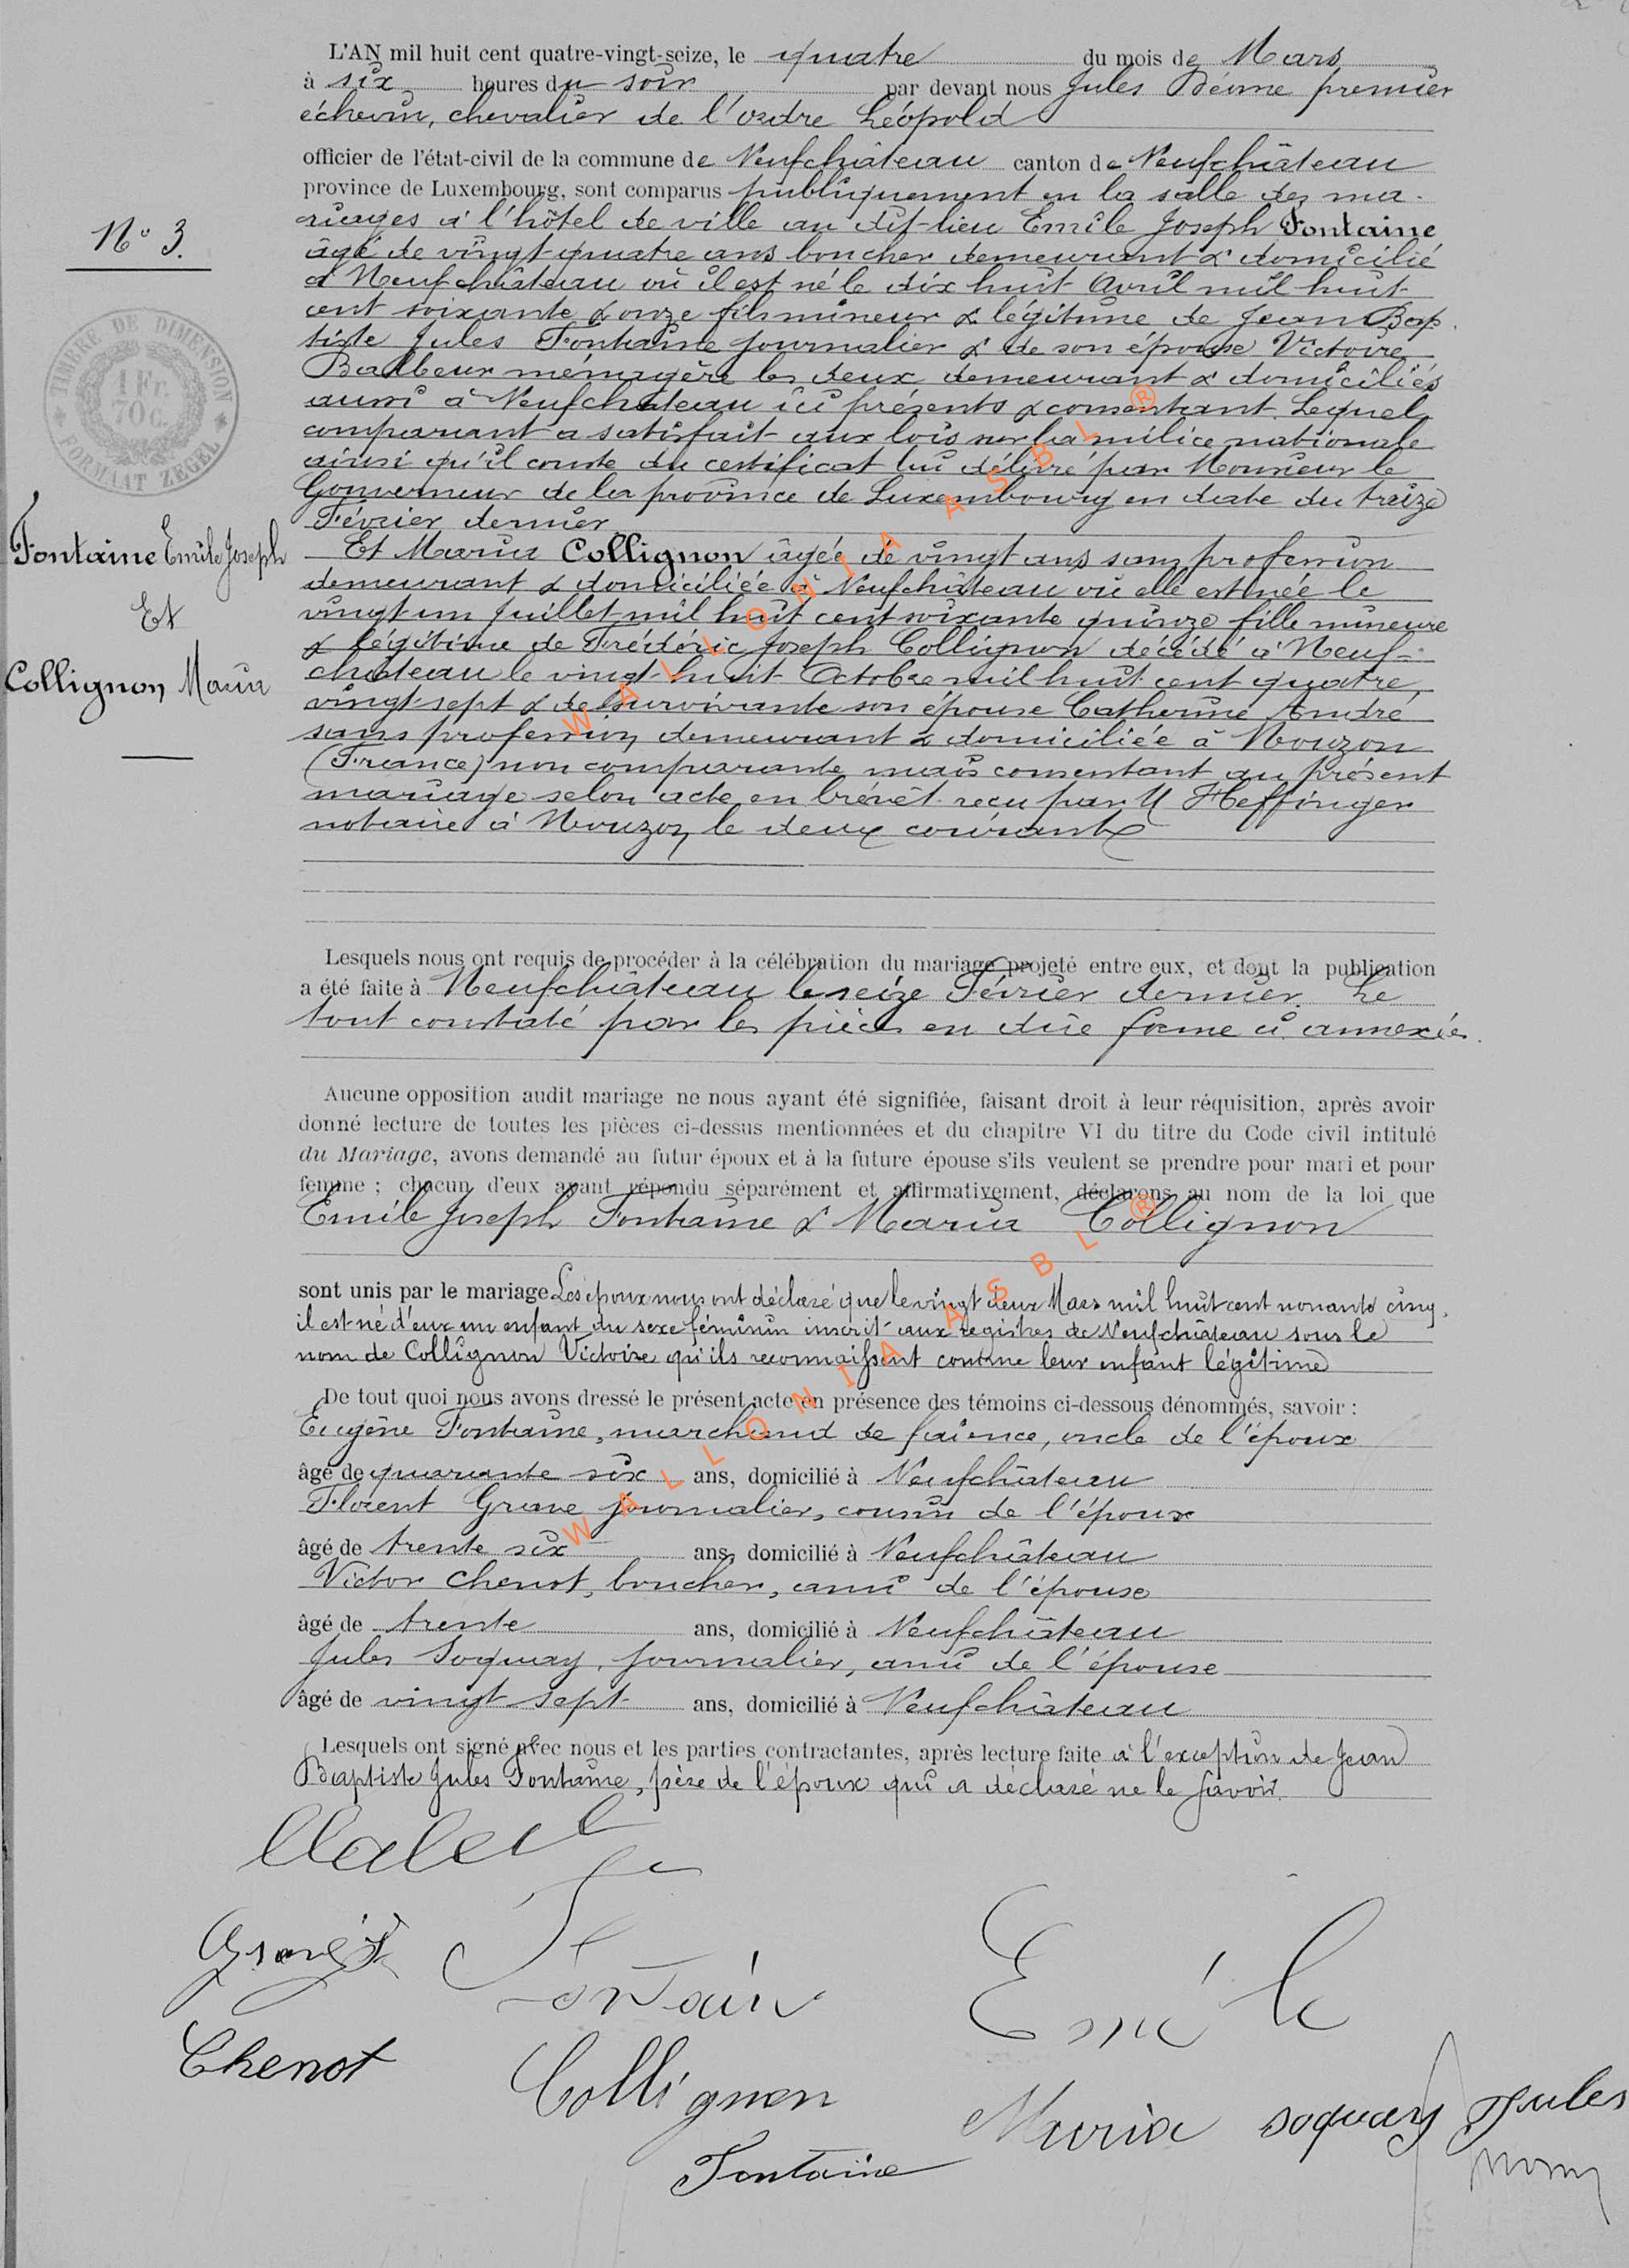 L'AN mil huit cent quatre-vingt-seize, le quatre du mois de Mars
à six heures du soir par devant nous Jules premier
échevin, chevalier de l'ordre Léopold
officier de l'état-civil de la commune de Neufchâteau canton de Neufchâteau
province de Luxembourg, sont comparus publiquement en la salle des ma-
N° 3.
riages à l'hôtel de ville au dit-lieu Emile Joseph Fontaine
âgé de vingt quatre ans boucher demeurant & domicilié
à Neufchâteau où il est né le dix huit Avril mil huit
cent soixante & onze fils mineur & légitime de Jean Bap
tiste Jules Fontaine journalier & de son épouse Victoire
ménagère les deux demeurant & domiciliés
aussi à Neufchateau ici présents & consentant. Lequel
comparant a satisfait aux lois sur la milice nationale
ainsi qu'il conste du certificat lui délivré par Monsieur le
Gouverneur de la province de Luxembourg en date du treize
Février dernier
TIMBRE DE DIMENSION
1 Fr.
70 C.
FORMAAT ZEGEL
Fontaine Emile Joseph
Et
Collignon Maria
Et Maria Collignon âgée de vingt ans sans profession
demeurant & domiciliée à Neufchâteau où elle est née le
vingt un Juillet mil huit cent soixante quinze fille mineure
& légitime de Frédéric Joseph Collignon décédé à Neuf-
chateau le vingt-huit Octobre mil huit cent quatre
vingt-sept & de survivante son épouse Catherine André
sans profession demeurant & domiciliée à Mouzon
(France) non comparante mais consentant au présent
mariage selon acte en brévêt reçu par M Heffinger
notaire à Mouzon le deux courant
Lesquels nous ont requis de procéder à la célébration du mariage projeté entre eux, et dont la publication
a été faite à Neufchâteau le seize Février dernier. Le
tout constaté par les pièces en dûe forme ci annexées.
Aucune opposition audit mariage ne nous ayant été signifiée, faisant droit à leur réquisition, après avoir
donné lecture de toutes les pièces ci-dessus mentionnées et du chapitre VI du titre du Code civil intitulé
du Mariage, avons demandé au futur époux et à la future épouse s'ils veulent se prendre pour mari et pour
femme ; chacun d'eux ayant répondu séparément et affirmativement, déclarons au nom de la loi que
Emile Joseph Fontaine & Maria Collignon
sont unis par le mariage Les époux nous ont déclaré que le vingt deux Mars mil huit cent nonante cinq,
il est né d'eux un enfant du sexe féminin inscrit aux registres de Neufchâteau sous le
nom de Collignon Victoire qu'ils reconnaissent comme leur enfant légitime
De tout quoi nous avons dressé le présent acte en présence des témoins ci-dessous dénommés, savoir :
Eugène Fontaine, marchand de faïence, oncle de l'époux
âgé de quarante six ans, domicilié à Neufchâteau
Florent Grave journalier, cousin de l'époux
âgé de trente six ans, domicilié à Neufchâteau
Victor Chenot, boucher, ami de l'épouse
âgé de trente ans, domicilié à Neufchâteau
Jules Soquay, journalier, ami de l'épouse
âgé de vingt sept ans, domicilié à Neufchâteau
Lesquels ont signé avec nous et les parties contractantes, après lecture faite à l'exception de Jean
Baptiste Jules Fontaine, père de l'époux qui a déclaré ne le savoir.
Fontain Emile
Chenot
Collignon Maria Soquay Jules
Fontaine
WALLONIA ASBL ®
WALLONIA ASBL ®